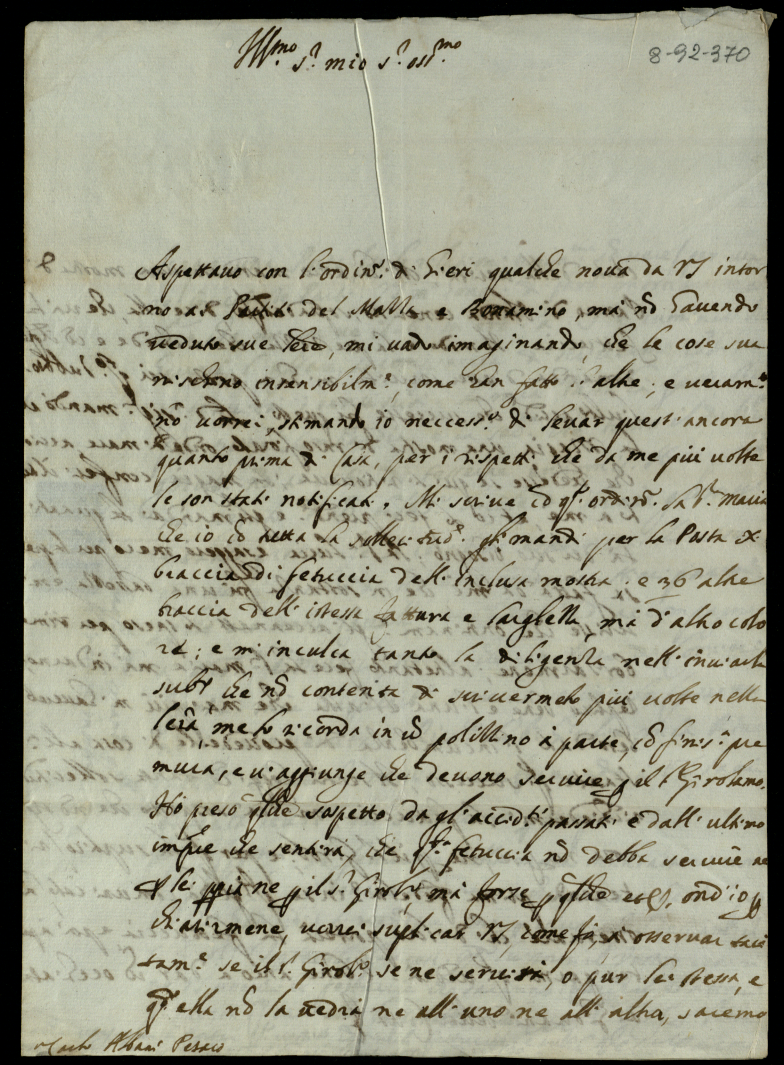 Ill.mo S.r mio S.r oss.mo
8-92-370
Aspettavo con l'ordin.o di hieri qualche nova da VS intor
no a del Malla e Bonamino, mà nõ havendo
veduto sue lrẽ, mi vado imaginando, che le cose sva
nischino insensibilm.e, come han fatto l'altre, e veram.te
nõ vorrei, stimando io neccess.o di levar questi ancora
quanto prima di Casa, per i rispetti che da me più volte
le son stati notificati. Mi scrive cõ q.to ordin.o la S.ra Maria
che io cõ tutta la sollecitud.e gli mandi per la Posta
braccia di fetuccia dell'inclusa mostra, e 36 altre
braccia dell'istessa fattura e larghezza, mà d'altro colo
re; e m'inculca tanto la diligenza nell'inviarla
subº che nõ contenta di scrivermelo più volte nella
lrã, me lo ricorda in ũ polizzino à parte, cõ finis.a pre
mura, e vi aggiunge che devono servire p il S.r Girolamo.
Hò preso qlche sospetto da gl'accid.ti passati e dall'ultimo
che sentirà, che q.ta fetuccia nõ debba servire ne
p lei ne p il S.r Girol.o mà forse p qlche ond'io p
chiarirmene, vorrei suplicar VS, come fò, à osservar taci
tam.e se il S.r Girol.o se ne servirà, o pur lei stessa, e
q.do ella nõ la vedrà ne all'uno ne all'altra, saremo
Carlo Albani Pesaro